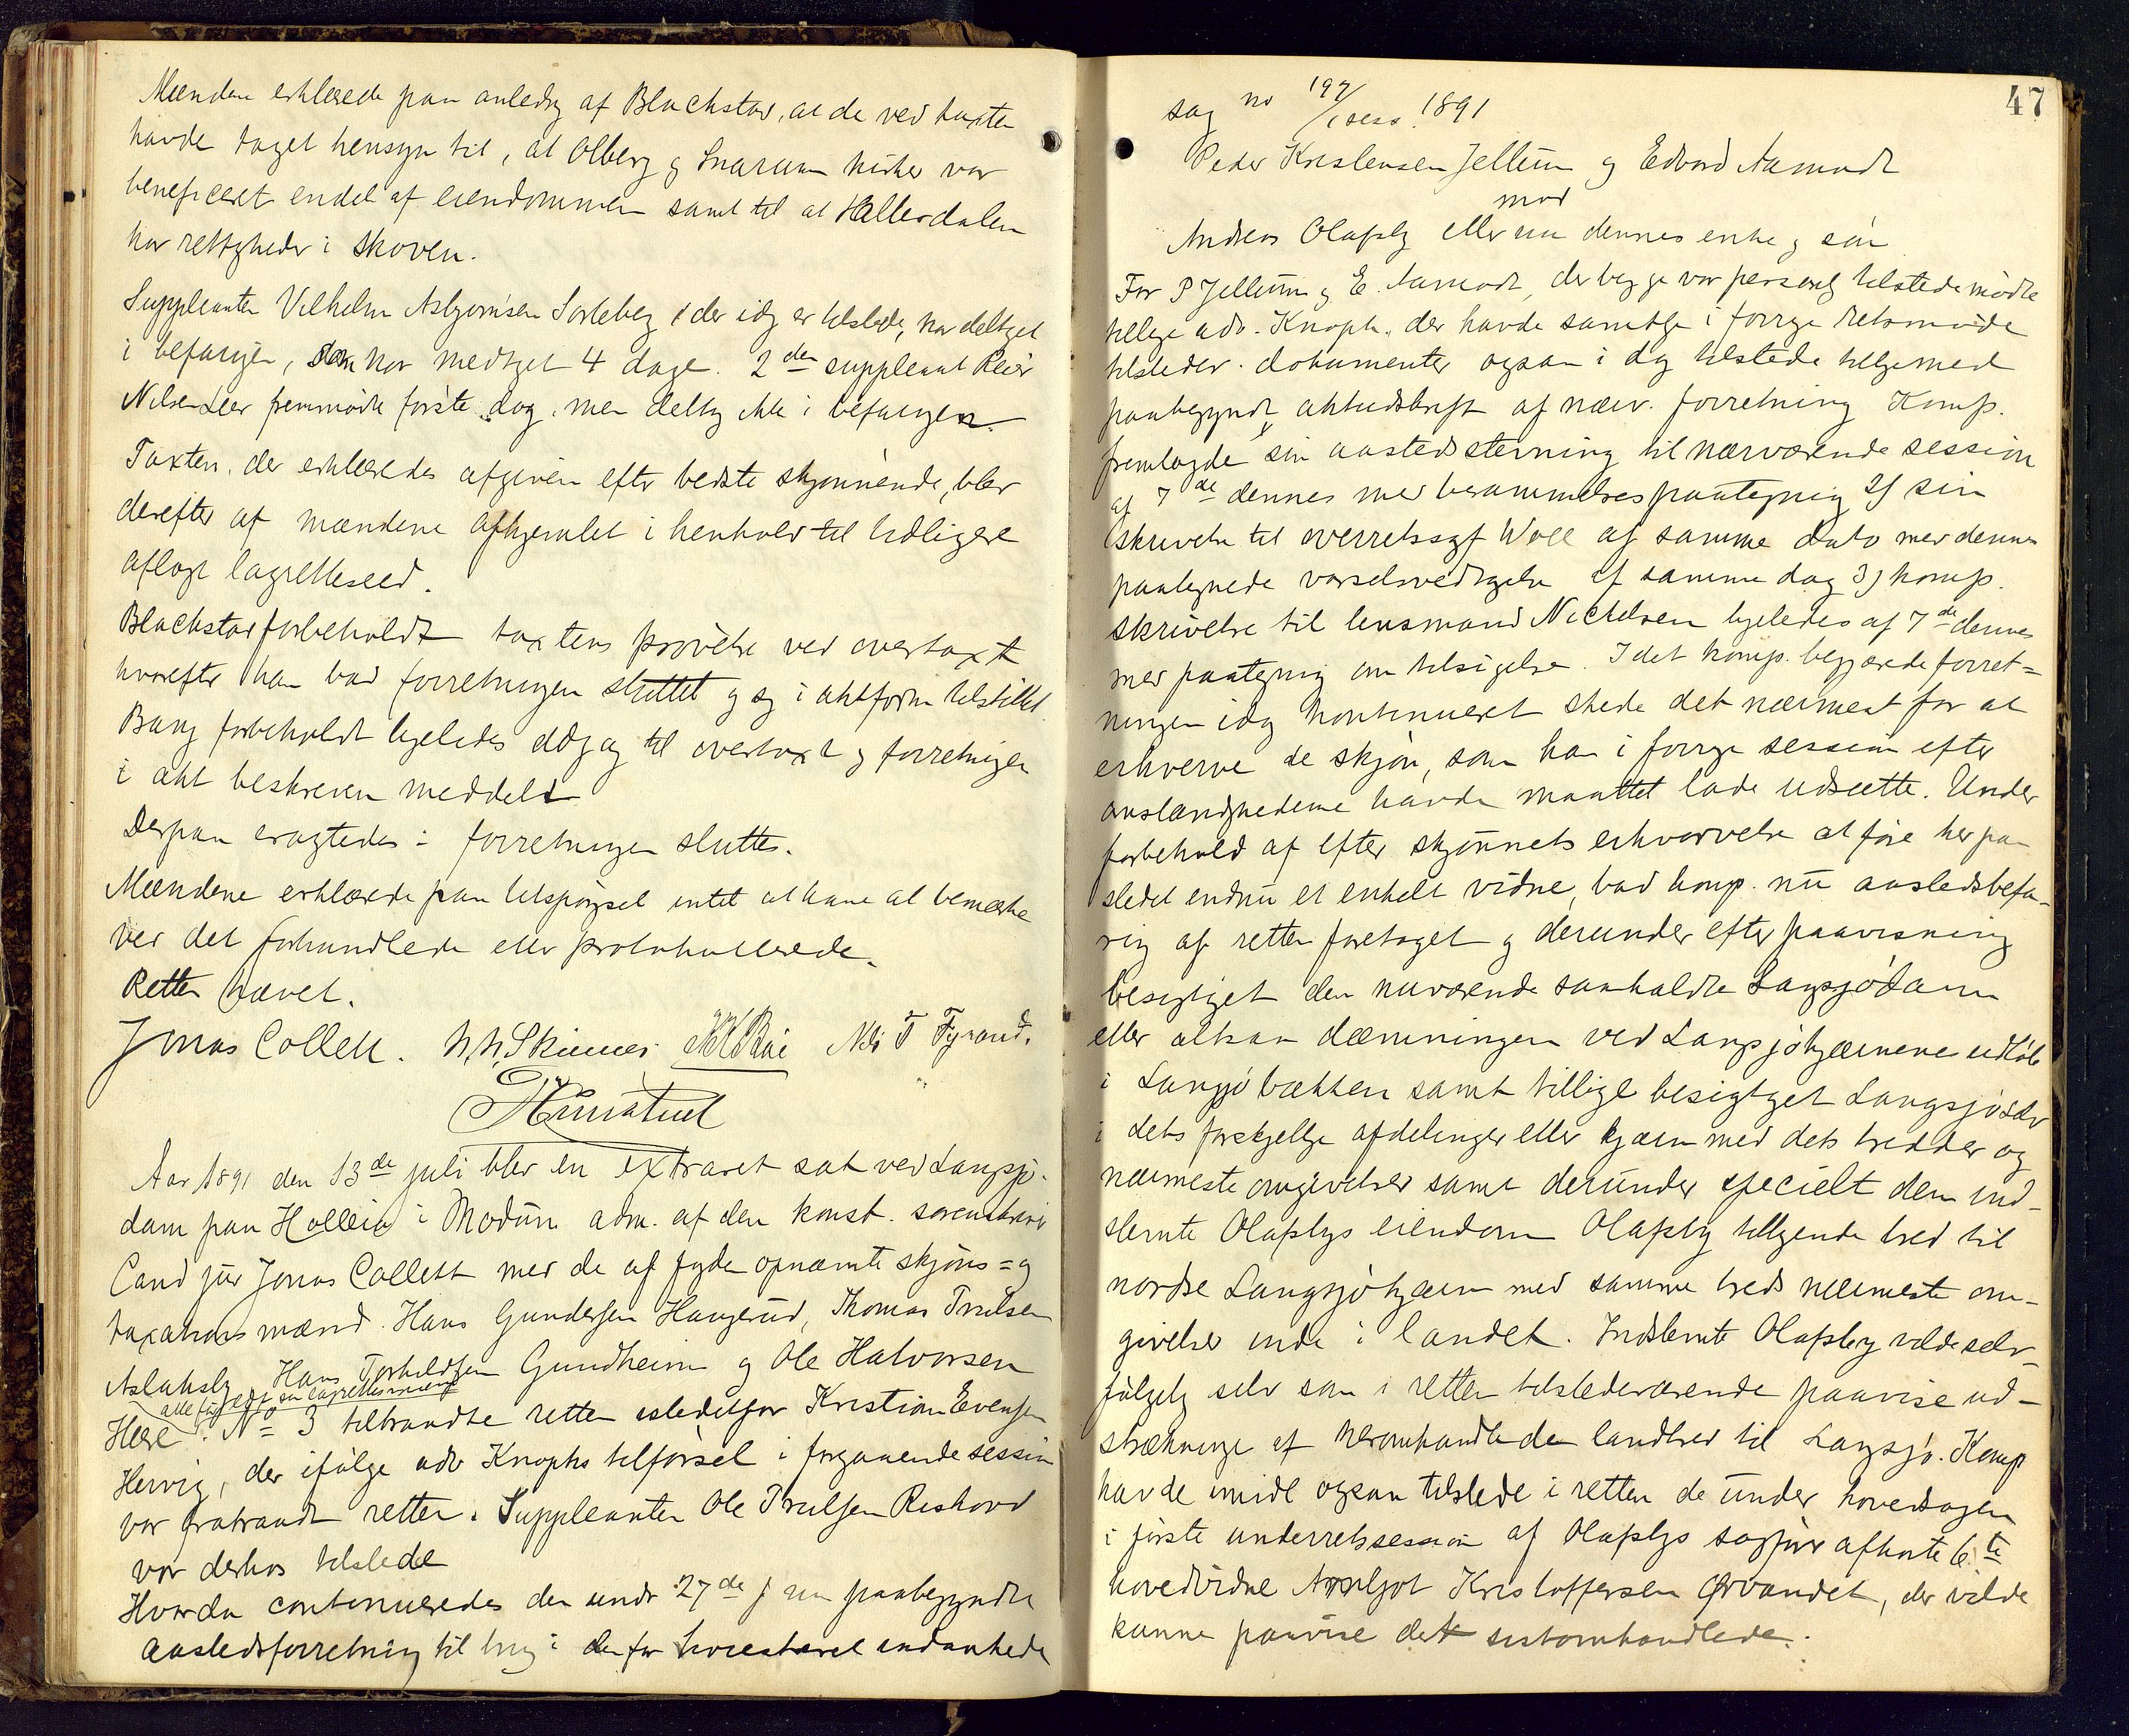 Mændene erklærede paa anledng af Blackstad, at de ved taxten
havde taget hensyn til, at Olberg og Snarum kirker var
beneficeret endel af eiendommen samt til at Hallerdalen
har rettigheder i skoven.
Suppleanten Vilhelm Asbjørnsen Sorteberg, der idg er tilstede, har deltget
i befaringen, som har medtget 4 dage. 2den suppleant Reier
Nilsen Leer fremmødte første dag, men deltog ikke i befaringen.
Taxten, der erklæredes afgiven efter bedste skjønnende, blev
derefter af mændene afhjemlet i henhold til tidligere
aflagt lagretteseed.
Blackstad forbeholdt taxtens prøvelse ved overtaxt
hvorefter han bad forretningen sluttet og sig i aktform tilstillet.
Bang forbeholdt ligeledes adgag til overtaxt og forretnigen
i akt beskreven meddelt
Derpaa eragtedes: forretningen sluttes.
Mændene erklærede paa tilspørgsel intet at have at bemærke
ved det forhandlede eller protokollerede.
Retten hævet.
Jonas Collett. Nils T Fyrand.
Aar 1891 den 13de juli blev en extraret sat ved Langsjø-
dam paa Holleia i Modum adm. af den konst. sorenskriver
Cand jur Jonas Collett med de af fgden opnævnte skjøns= og
taxationsmænd. Hans Gundersen Haugerud, Thomas Trulsen
Aslaksby, Hans Torkildsen Gundheim og Ole Halvorsen
alle før edf. som lagrettesmænd
Here. No 3 tiltraadte retten istedetfor Kristian Evensen
Hervig, der ifølge adv Knophs tilførsel i forgaaende session
var fratraadt retten. Suppleanten Ole Trulsen Reshovd
var derhos tilstede
Hvorda continueredes den under 27de juni paabegyndte
aastedsforretning til brug i den for høiesteret indankede
47
sag no 197/1 sess. 1891
Peder Kristensen Jellum og Edvard Aamodt
mod
Andreas Olafsby eller nu dennes enke og søn
For P Jellum og E. Aamodt, der begge var personlg tilstede mødte
tillige adv. Knoph, der havde samtlge i forrge retsmøde
tilstedev. dokumenter ogsaa i dag tilstede tillgemed
paabegyndt aktudskrift af nærv. forretning Komp.
fremlagde sin aastedsstevning til nærværende session
af 7de dennes med berammelsespaategnig 2) sin
skrivelse til overretssgf Woll af samme dato med dennes
paategnede varselsvedtgelse af samme dag 3) komp.
skrivelse til lensmand Nickelsen ligeledes af 7de dennes
med paategnig om tilsigelse. Idet komp. begjærede forret=
ningen idg kontinueret skede det nærmest for at
erhverve de skjøn, som han i forrge session efter
omstændghederne havde maattet lade udsætte. Under
forbehold af efter skjønnets erhvervelse at føre her paa
stedet endnu et enkelt vidne, bad komp. nu aastedsbefa-
rig af retten foretaget og derunder efter paavisning
besigtiget den nuværende saakaldte Langsjødam
eller altsaa dæmningen ved Langsjøtjærnene udløb
i Langsjøbækken samt tillige besigtget Langsjøsdr
i dets forskjellge afdelinger eller tjærn med dets bredder og
nærmeste omgivelser samt derunder specielt den ind-
stevnte Olafsbys eiendom Olafsby tillgende bred til
nordre Langsjøtjærn med samme breds nærmeste om-
givelser inde i landet. Indstevnte Olafsby vilde selv-
følgelg selv som i retten tilstedeværende paavise ud-
strækninge af heromhandlede landbred til Langsjø. Komp
havde imidl ogsaa tilstede i retten de under hovedsagen
i første underretssession af Olafsbys sagfører afhørte 6te
hovedvidne Arneljot Kristoffersen Ørvandet, der vilde
kunne paavise det sistomhandlede.